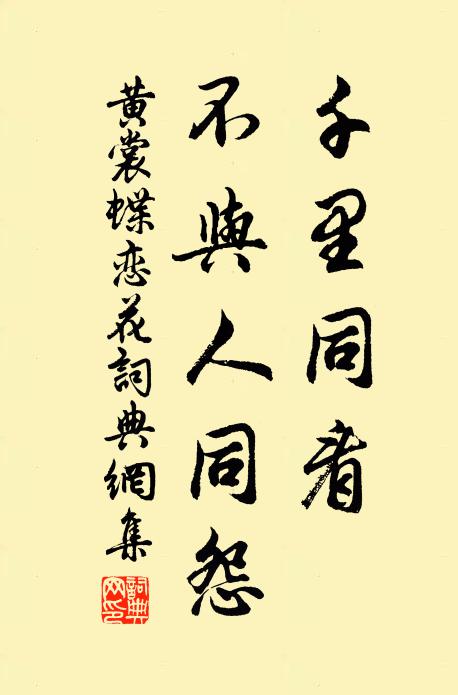 千里同看
不與人同怨
黄裳蝶恋花詞典網集
詞典
网印